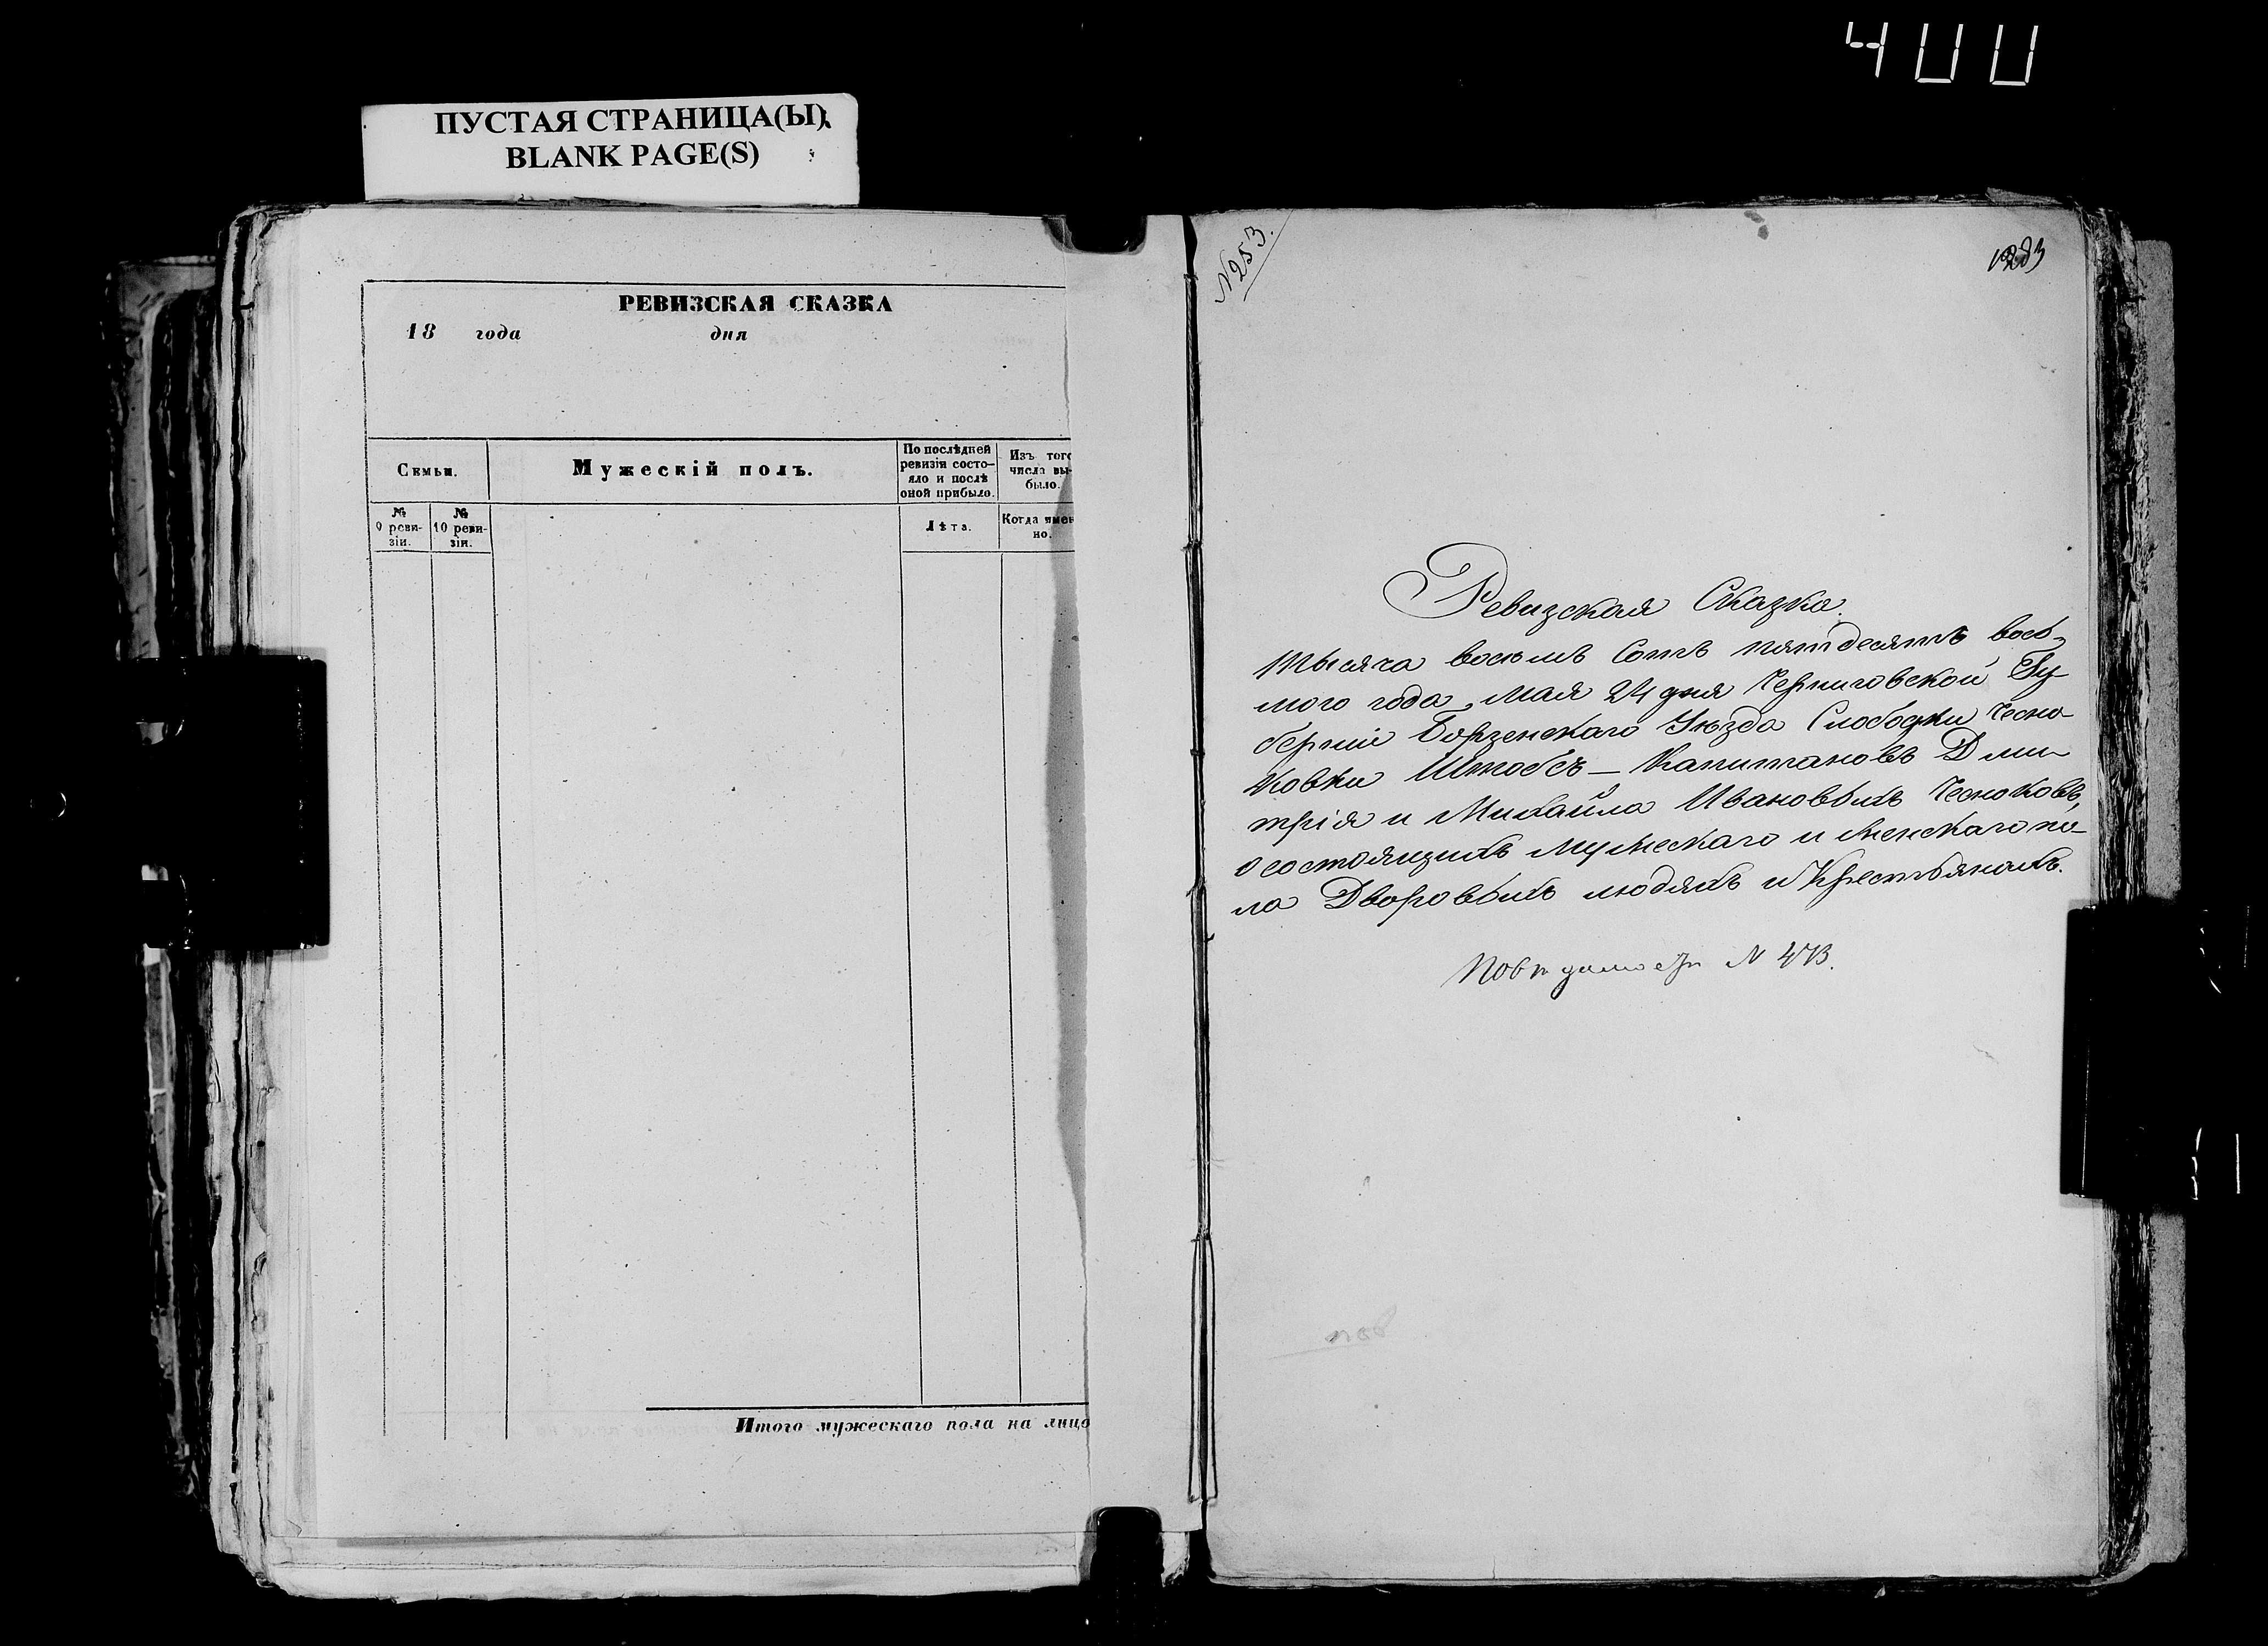 400
ПУСТАЯ СТРАНИЦА(Ы)
BLANK PAGE(S)
РЕВИЗСКАЯ СКАЗКА
18 года дня
Семьи.
Мужескій полъ.
По послѣдней
ревизіи состо-
яло и послѣ
оной прибыло.
Изъ того
числа вы-
было.
№
9 реви-
зіи.
№
10 реви-
зіи.
Лѣта.
Когда имен
но.
Итого мужескаго пола на лицо
№253.
Ревизская Сказка.
Тысяча восемь сотъ пятдесятъ вось-
мого года, мая 24 дня Черниговской Гу-
берніи Борзенскаго Уѣзда Слободки Чесно-
ковки Штабсъ-Капитановъ Дми-
трія и Михайла Ивановыхъ Чесноковъ,
о состоящихъ мужескаго и женскаго по-
ла Дворовыхъ людяхъ и Крестьянахъ.
N 473.